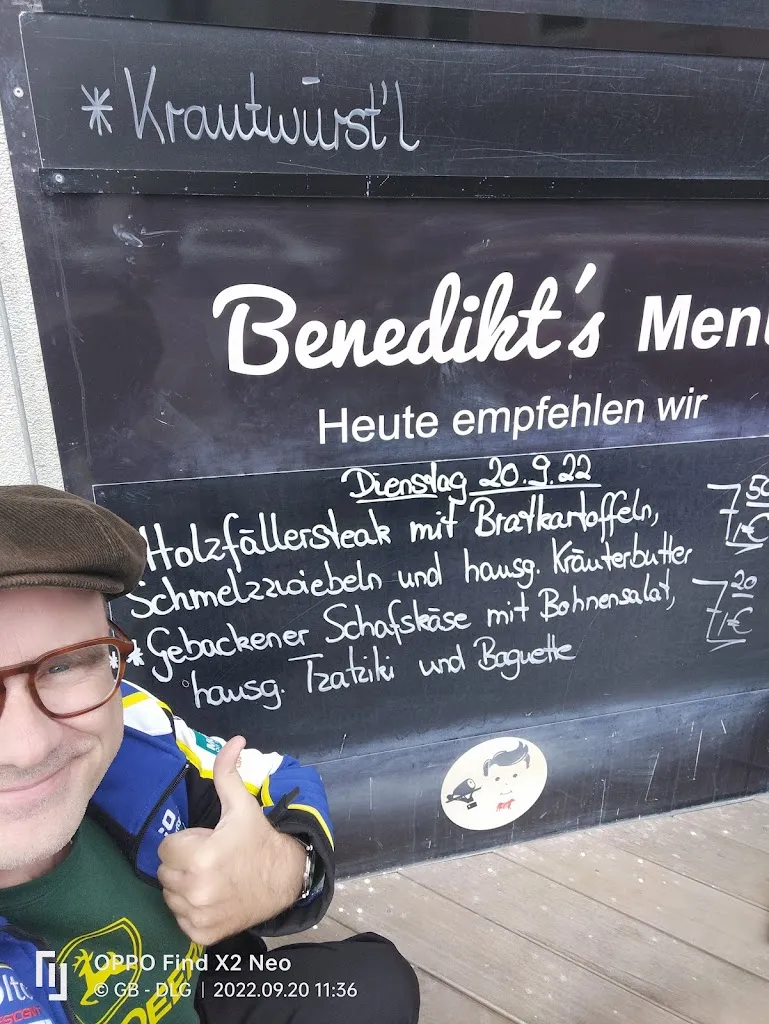 *Krautwürst'l
Benedikt's Menu
Heute empfehlen wir
Dienstag 20.9.22
*Holzfällersteak mit Bratkartoffeln,
Schmelzzwiebeln und hausg. Kräuterbutter
7,50 €
*Gebackener Schafskäse mit Bohnensalat,
hausg. Tzatziki und Baguette
7,20 €
DEER
OPPO Find X2 Neo
© GB - DLG | 2022.09.20 11:36